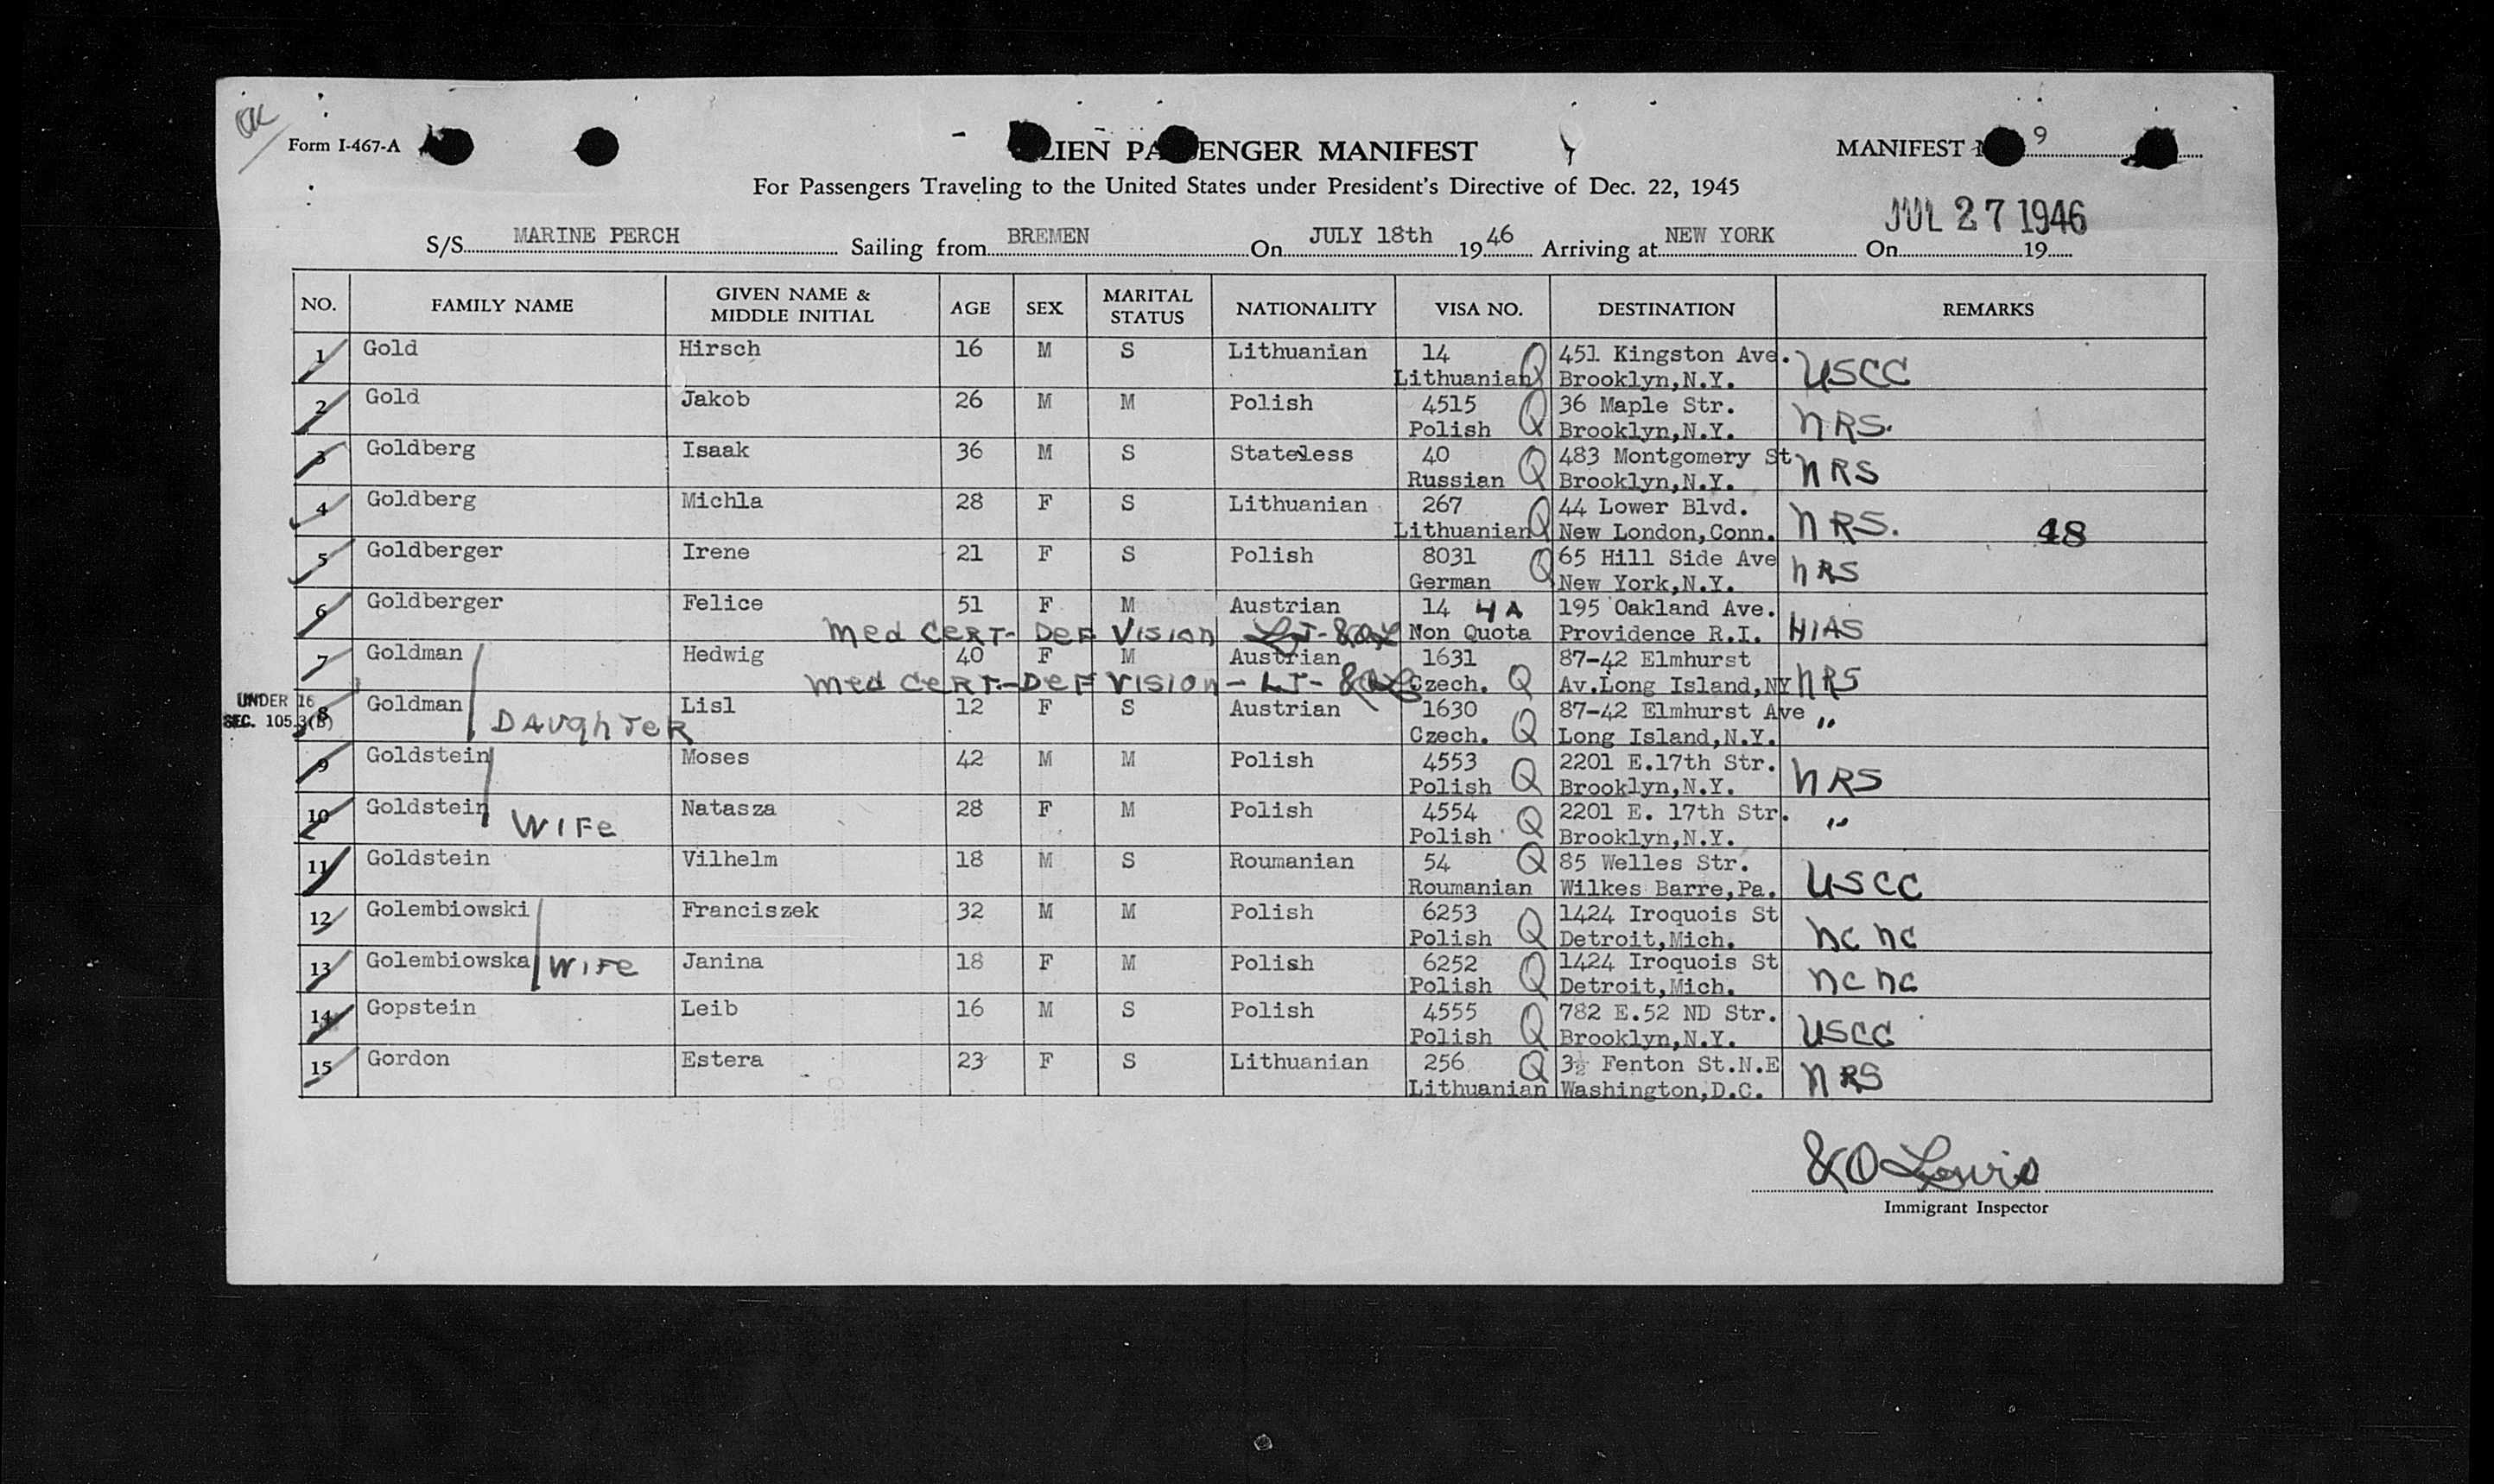 OK
Form I-467-A
LIEN PA ENGER MANIFEST
MANIFEST 9
For Passengers Traveling to the United States under President's Directive of Dec. 22, 1945
JUL 27 1946
S/S MARINE PERCH Sailing from BREMEN On JULY 18th 19 46 Arriving at NEW YORK On 19
NO. FAMILY NAME GIVEN NAME & MIDDLE INITIAL AGE SEX MARITAL STATUS NATIONALITY VISA NO. DESTINATION REMARKS
1 Gold Hirsch 16 M S Lithuanian 14 Q 451 Kingston Ave. USCC
Lithuanian Brooklyn,N.Y.
2 Gold Jakob 26 M M Polish 4515 Q 36 Maple Str. NRS.
Polish Brooklyn,N.Y.
3 Goldberg Isaak 36 M S Stateless 40 Q 483 Montgomery St NRS
Russian Brooklyn,N.Y.
4 Goldberg Michla 28 F S Lithuanian 267 Q 44 Lower Blvd. NRS. 48
Lithuanian New London,Conn.
5 Goldberger Irene 21 F S Polish 8031 Q 65 Hill Side Ave NRS
German New York,N.Y.
6 Goldberger Felice 51 F M Austrian 14 4A 195 Oakland Ave. HIAS
Med Cert- Def Vision Non Quota Providence R.I.
7 Goldman Hedwig 40 F M Austrian 1631 87-42 Elmhurst NRS
Med Cert-Def Vision - Czech. Q Av.Long Island,NY
UNDER 16
SEC. 105.3(B)
8 Goldman Daughter Lisl 12 F S Austrian 1630 87-42 Elmhurst Ave "
Czech. Q Long Island,N.Y.
9 Goldstein Moses 42 M M Polish 4553 Q 2201 E.17th Str. NRS
Polish Brooklyn,N.Y.
10 Goldstein Wife Natasza 28 F M Polish 4554 Q 2201 E. 17th Str. "
Polish Brooklyn,N.Y.
11 Goldstein Vilhelm 18 M S Roumanian 54 Q 85 Welles Str. USCC
Roumanian Wilkes Barre,Pa.
12 Golembiowski Franciszek 32 M M Polish 6253 Q 1424 Iroquois St NCNC
Polish Detroit,Mich.
13 Golembiowska Wife Janina 18 F M Polish 6252 Q 1424 Iroquois St NCNC
Polish Detroit,Mich.
14 Gopstein Leib 16 M S Polish 4555 Q 782 E.52 ND Str. USCC
Polish Brooklyn,N.Y.
15 Gordon Estera 23 F S Lithuanian 256 Q 3½ Fenton St.N.E NRS
Lithuanian Washington,D.C.
Lewis
Immigrant Inspector